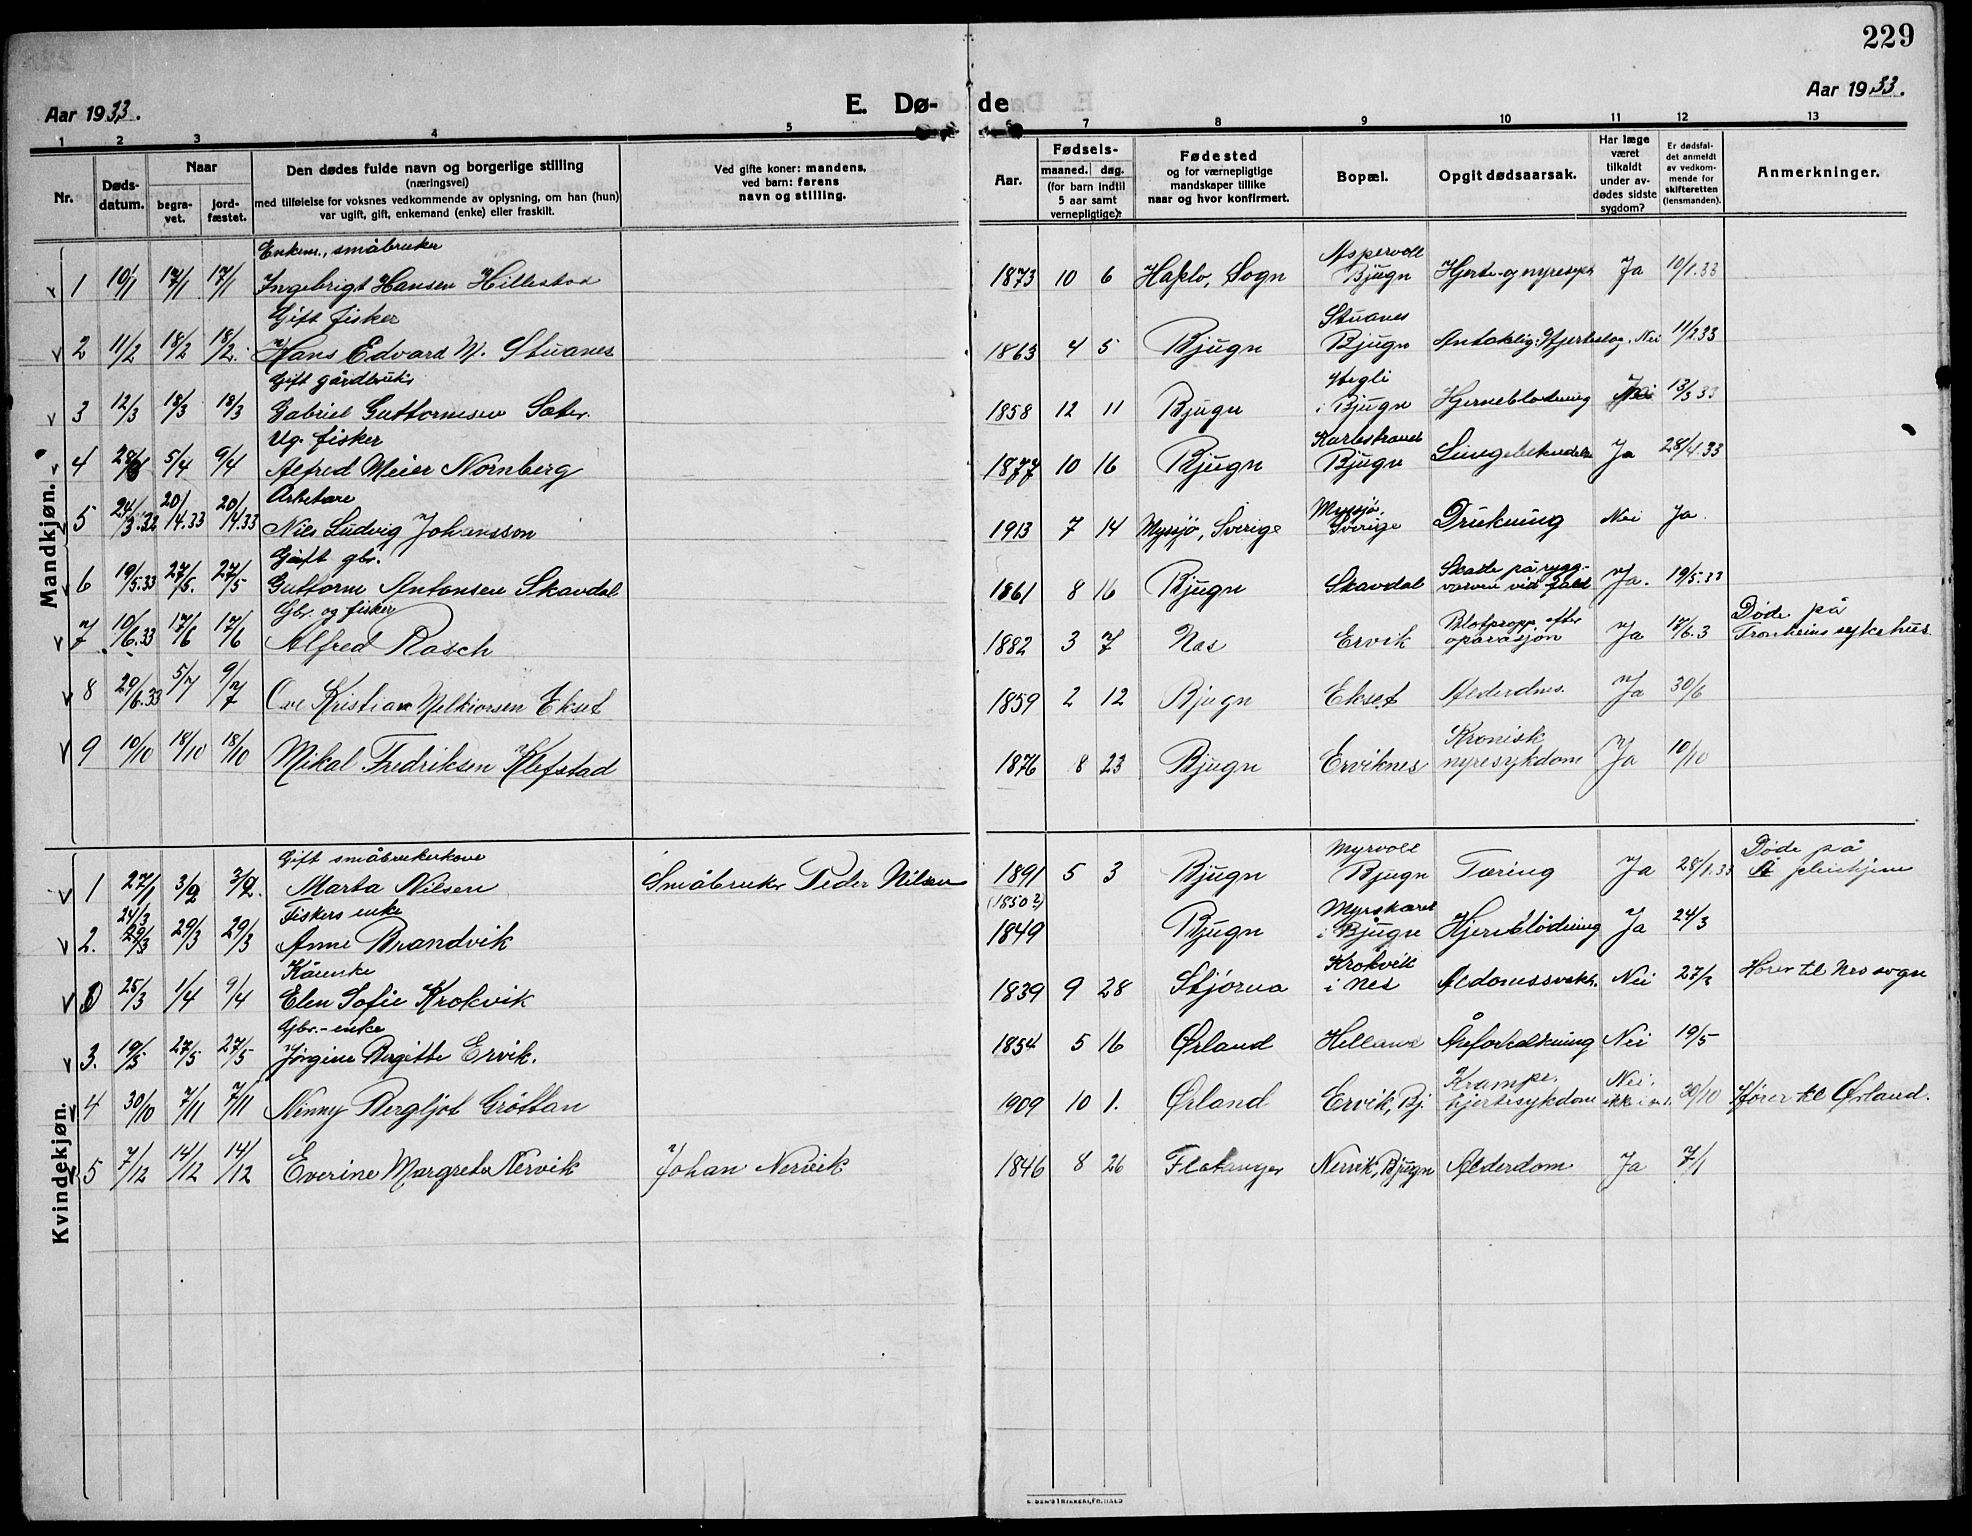 229
Aar 1933.
E. Dø-
de
Aar 1933.
1 2 3 4 5 6 7 8 9 10 11 12 13
Nr.
Døds-
datum.
Naar
begra-
vet.
jord-
fæstet.
Den dødes fulde navn og borgerlige stilling
(næringsvei)
med tilføielse for voksnes vedkommende av oplysning, om han (hun)
var ugift, gift, enkemand (enke) eller fraskilt.
Ved gifte koner: mandens,
ved barn: farens
navn og stilling.
Aar.
Fødsels-
maaned. dag.
(for barn indtil
5 aar samt
vernepligtige).
Fødested
og for værnepligtige
mandskaper tillike
naar og hvor konfirmert.
Bopæl.
Opgit dødsaarsak.
Har læge
været
tilkaldt
under av-
dødes sidste
sygdom?
Er dødsfal-
det anmeldt
av vedkom-
mende for
skifteretten
(lensmanden).
Anmerkninger.
Mandkjøn.
Enkem., småbruker Aspervoll
1 10/1 17/1 17/1 Ingebrigt Hansen Hillestad 1873 10 6 Hafslo, Sogn Bjugn Hjerte- og nyresyk Ja 10/1.33
Gift fisker Stuanes
2 11/2 18/2 18/2. Hans Edvard M. Stuanes 1863 4 5 Bjugn Bjugn Antaklig Hjerteslag. Nei 11/2 33
Gift gårdbruk. Hegli
3 12/3 18/3 18/3 Gabriel Guttormsen Sæter. 1858 12 11 Bjugn i Bjugn Hjerneblødning 13/3 33
Ug. fisker
4 5/4 9/4 Alfred Meier Nornberg 1877 10 16 Bjugn Bjugn Ja 28/4.33
Arbetare Myssjø,
5 24/3.32 20/14.33 20/14.33 Nils Ludvig Johansson 1913 7 14 Myssjø, Sverige Sverige Drukning Nei Ja.
Gift gbr. Skade på rygg-
6 19/5.33 27/5. 27/5 Guttorm Antonsen Skavdal 1861 8 16 Bjugn Skavdal Ja. 19/5.33
Gbr. og fisker Blotpropp efter Døde på
7 10/6.33 17/6 17/6 Alfred Rasch 1882 3 7 Nes Ervik oparasjon Ja Tronheims sykehus.
8 29/6.33 5/7 9/7 Ove Kristian Melkiorsen Ekset 1859 2 12 Bjugn Ekset Ja 30/6
Kronisk
9 10/10 18/10 18/10 Mikal Fredriksen Klefstad 1876 8 23 Bjugn Erviknes nyresykdom Ja 10/10
Kvindekjøn.
Gift småbrukerkone Myrvoll Døde på
1 27/1 3/2 3/2. Marta Nilsen Småbruker Peder Nilsen 1891 5 3 Bjugn Bjugn Tæring Ja 28/1.33
24/3 Fiskers enke (1850?) Myrskaret
2. 29/3 29/3 29/3 Anne Brandvik 1849 Bjugn i Bjugn Hjerneblødning Ja 24/3
Kårenke Krokvik
25/3 1/4 9/4 Elen Sofie Krokvik 1839 9 28 Stjørna i Nes Aldomssvekk. Nei 27/3 Hører til Nes sogn
Gbr.-enke
3. 19/5 27/5 27/5 Jørgine Bergitte Ervik. 1854 5 16 Ørland Helland Åreforkalkning Nei 19/5
Krampe. Nei.
4 30/10 7/11 7/11 Ninny Bergljot Grøttan 1909 10 1. Ørland Ervik, Bj. hjertesykdom 30/10 Hører til Ørland.
5 7/12 14/12 14/12 Everine Margreta Nervik Johan Nervik 1846 8 26 Flatanger Nervik, Bjugn Alderdom Ja 7/1